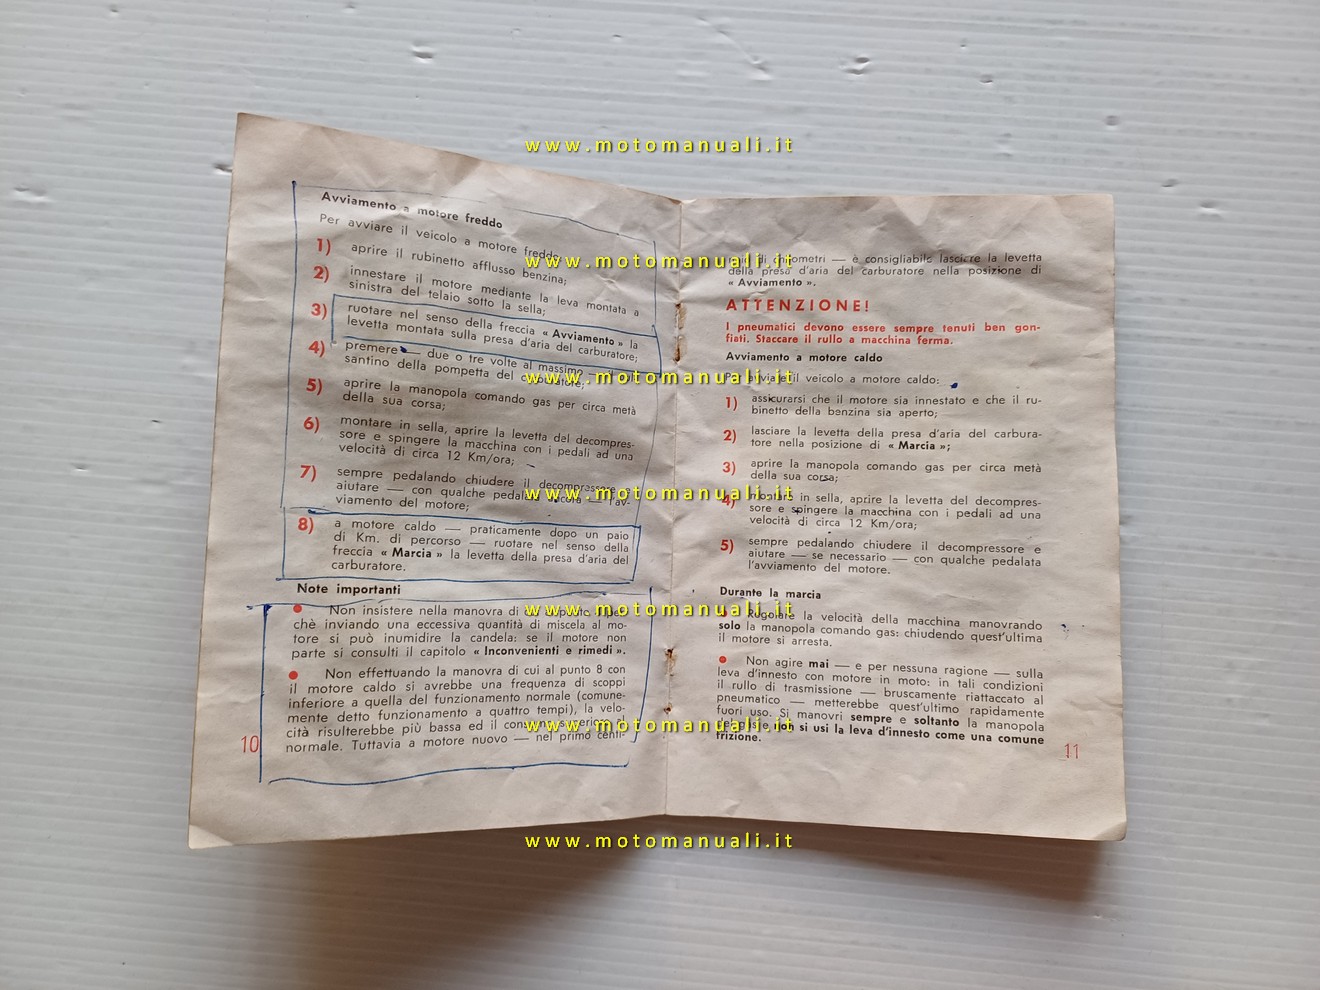 www.motomanuali.it
Avviamento a motore freddo
Per avviare il veicolo a motore freddo:
1) aprire il rubinetto afflusso benzina;
2) innestare il motore mediante la leva montata a
sinistra del telaio sotto la sella;
3) ruotare nel senso della freccia « Avviamento » la
levetta montata sulla presa d'aria del carburatore;
4) premere — due o tre volte al massimo —
santino della pompetta del carburatore;
5) aprire la manopola comando gas per circa metà
della sua corsa;
6) montare in sella, aprire la levetta del decompres-
sore e spingere la macchina con i pedali ad una
velocità di circa 12 Km/ora;
7) sempre pedalando chiudere il decompressore
aiutare — con qualche pedalata ancora — l'av-
viamento del motore;
8) a motore caldo — praticamente dopo un paio
di Km. di percorso — ruotare nel senso della
freccia « Marcia » la levetta della presa d'aria del
carburatore.
Note importanti
● Non insistere nella manovra di cui al punto
chè inviando una eccessiva quantità di miscela al mo-
tore si può inumidire la candela: se il motore non
parte si consulti il capitolo « Inconvenienti e rimedi ».
● Non effettuando la manovra di cui al punto 8 con
il motore caldo si avrebbe una frequenza di scoppi
inferiore a quella del funzionamento normale (comune-
mente detto funzionamento a quattro tempi), la velo-
cità risulterebbe più bassa ed il consumo superiore al
normale. Tuttavia a motore nuovo — nel primo centi-
10
www.motomanuali.it
di chilometri — è consigliabile lasciare la levetta
della presa d'aria del carburatore nella posizione di
« Avviamento ».
ATTENZIONE!
I pneumatici devono essere sempre tenuti ben gon-
fiati. Staccare il rullo a macchina ferma.
Avviamento a motore caldo
www.motomanuali.it
Per avviare il veicolo a motore caldo:
1) assicurarsi che il motore sia innestato e che il ru-
binetto della benzina sia aperto;
2) lasciare la levetta della presa d'aria del carbura-
tore nella posizione di « Marcia »;
3) aprire la manopola comando gas per circa metà
della sua corsa;
www.motomanuali.it
4) montare in sella, aprire la levetta del decompres-
sore e spingere la macchina con i pedali ad una
velocità di circa 12 Km/ora;
5) sempre pedalando chiudere il decompressore e
aiutare — se necessario — con qualche pedalata
l'avviamento del motore.
Durante la marcia
www.motomanuali.it
● Regolare la velocità della macchina manovrando
solo la manopola comando gas: chiudendo quest'ultima
il motore si arresta.
● Non agire mai — e per nessuna ragione — sulla
leva d'innesto con motore in moto: in tali condizioni
il rullo di trasmissione — bruscamente riattaccato al
pneumatico — metterebbe quest'ultimo rapidamente
fuori uso. Si manovri sempre e soltanto la manopola
www.motomanuali.it
del gas e non si usi la leva d'innesto come una comune
frizione.
11
www.motomanuali.it